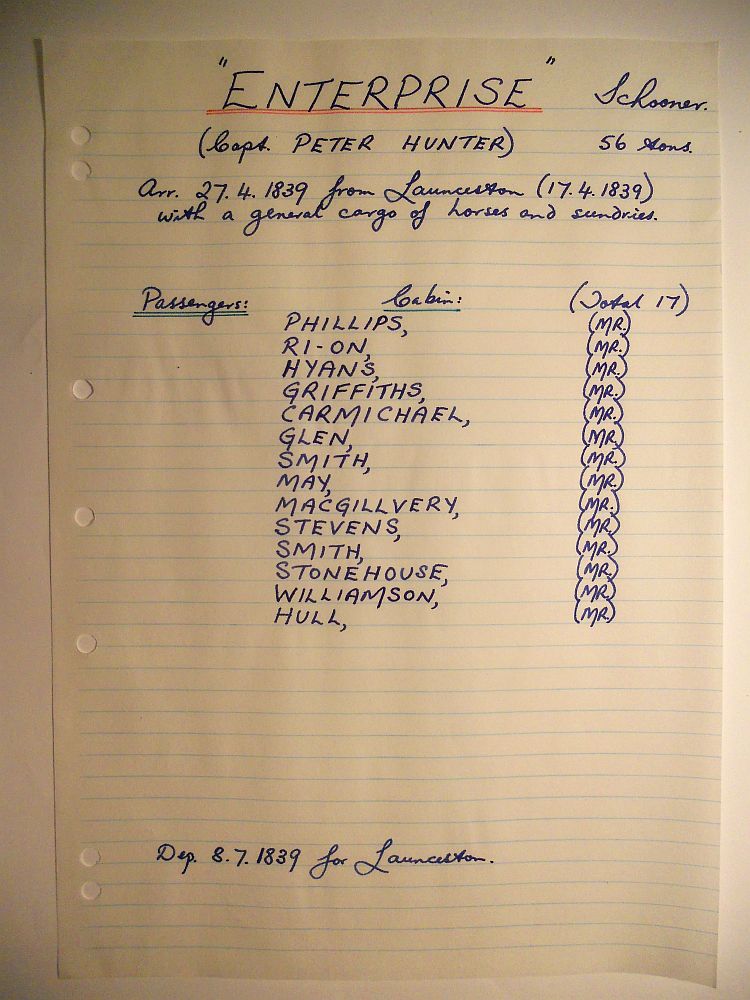 "ENTERPRISE" Schooner.
(Capt. PETER HUNTER) 56 tons.
Arr. 27.4.1839 from Launceston (17.4.1839)
with a general cargo of horses and sundries.
Passengers: Cabin: (Total 17)
PHILLIPS, (MR.)
RI-ON, (MR.)
HYANS, (MR.)
GRIFFITHS, (MR.)
CARMICHAEL, (MR.)
GLEN, (MR.)
SMITH, (MR.)
MAY, (MR.)
MACGILLVERY, (MR.)
STEVENS, (MR.)
SMITH, (MR.)
STONEHOUSE, (MR.)
WILLIAMSON, (MR.)
HULL, (MR.)
Dep. 8.7.1839 for Launceston.